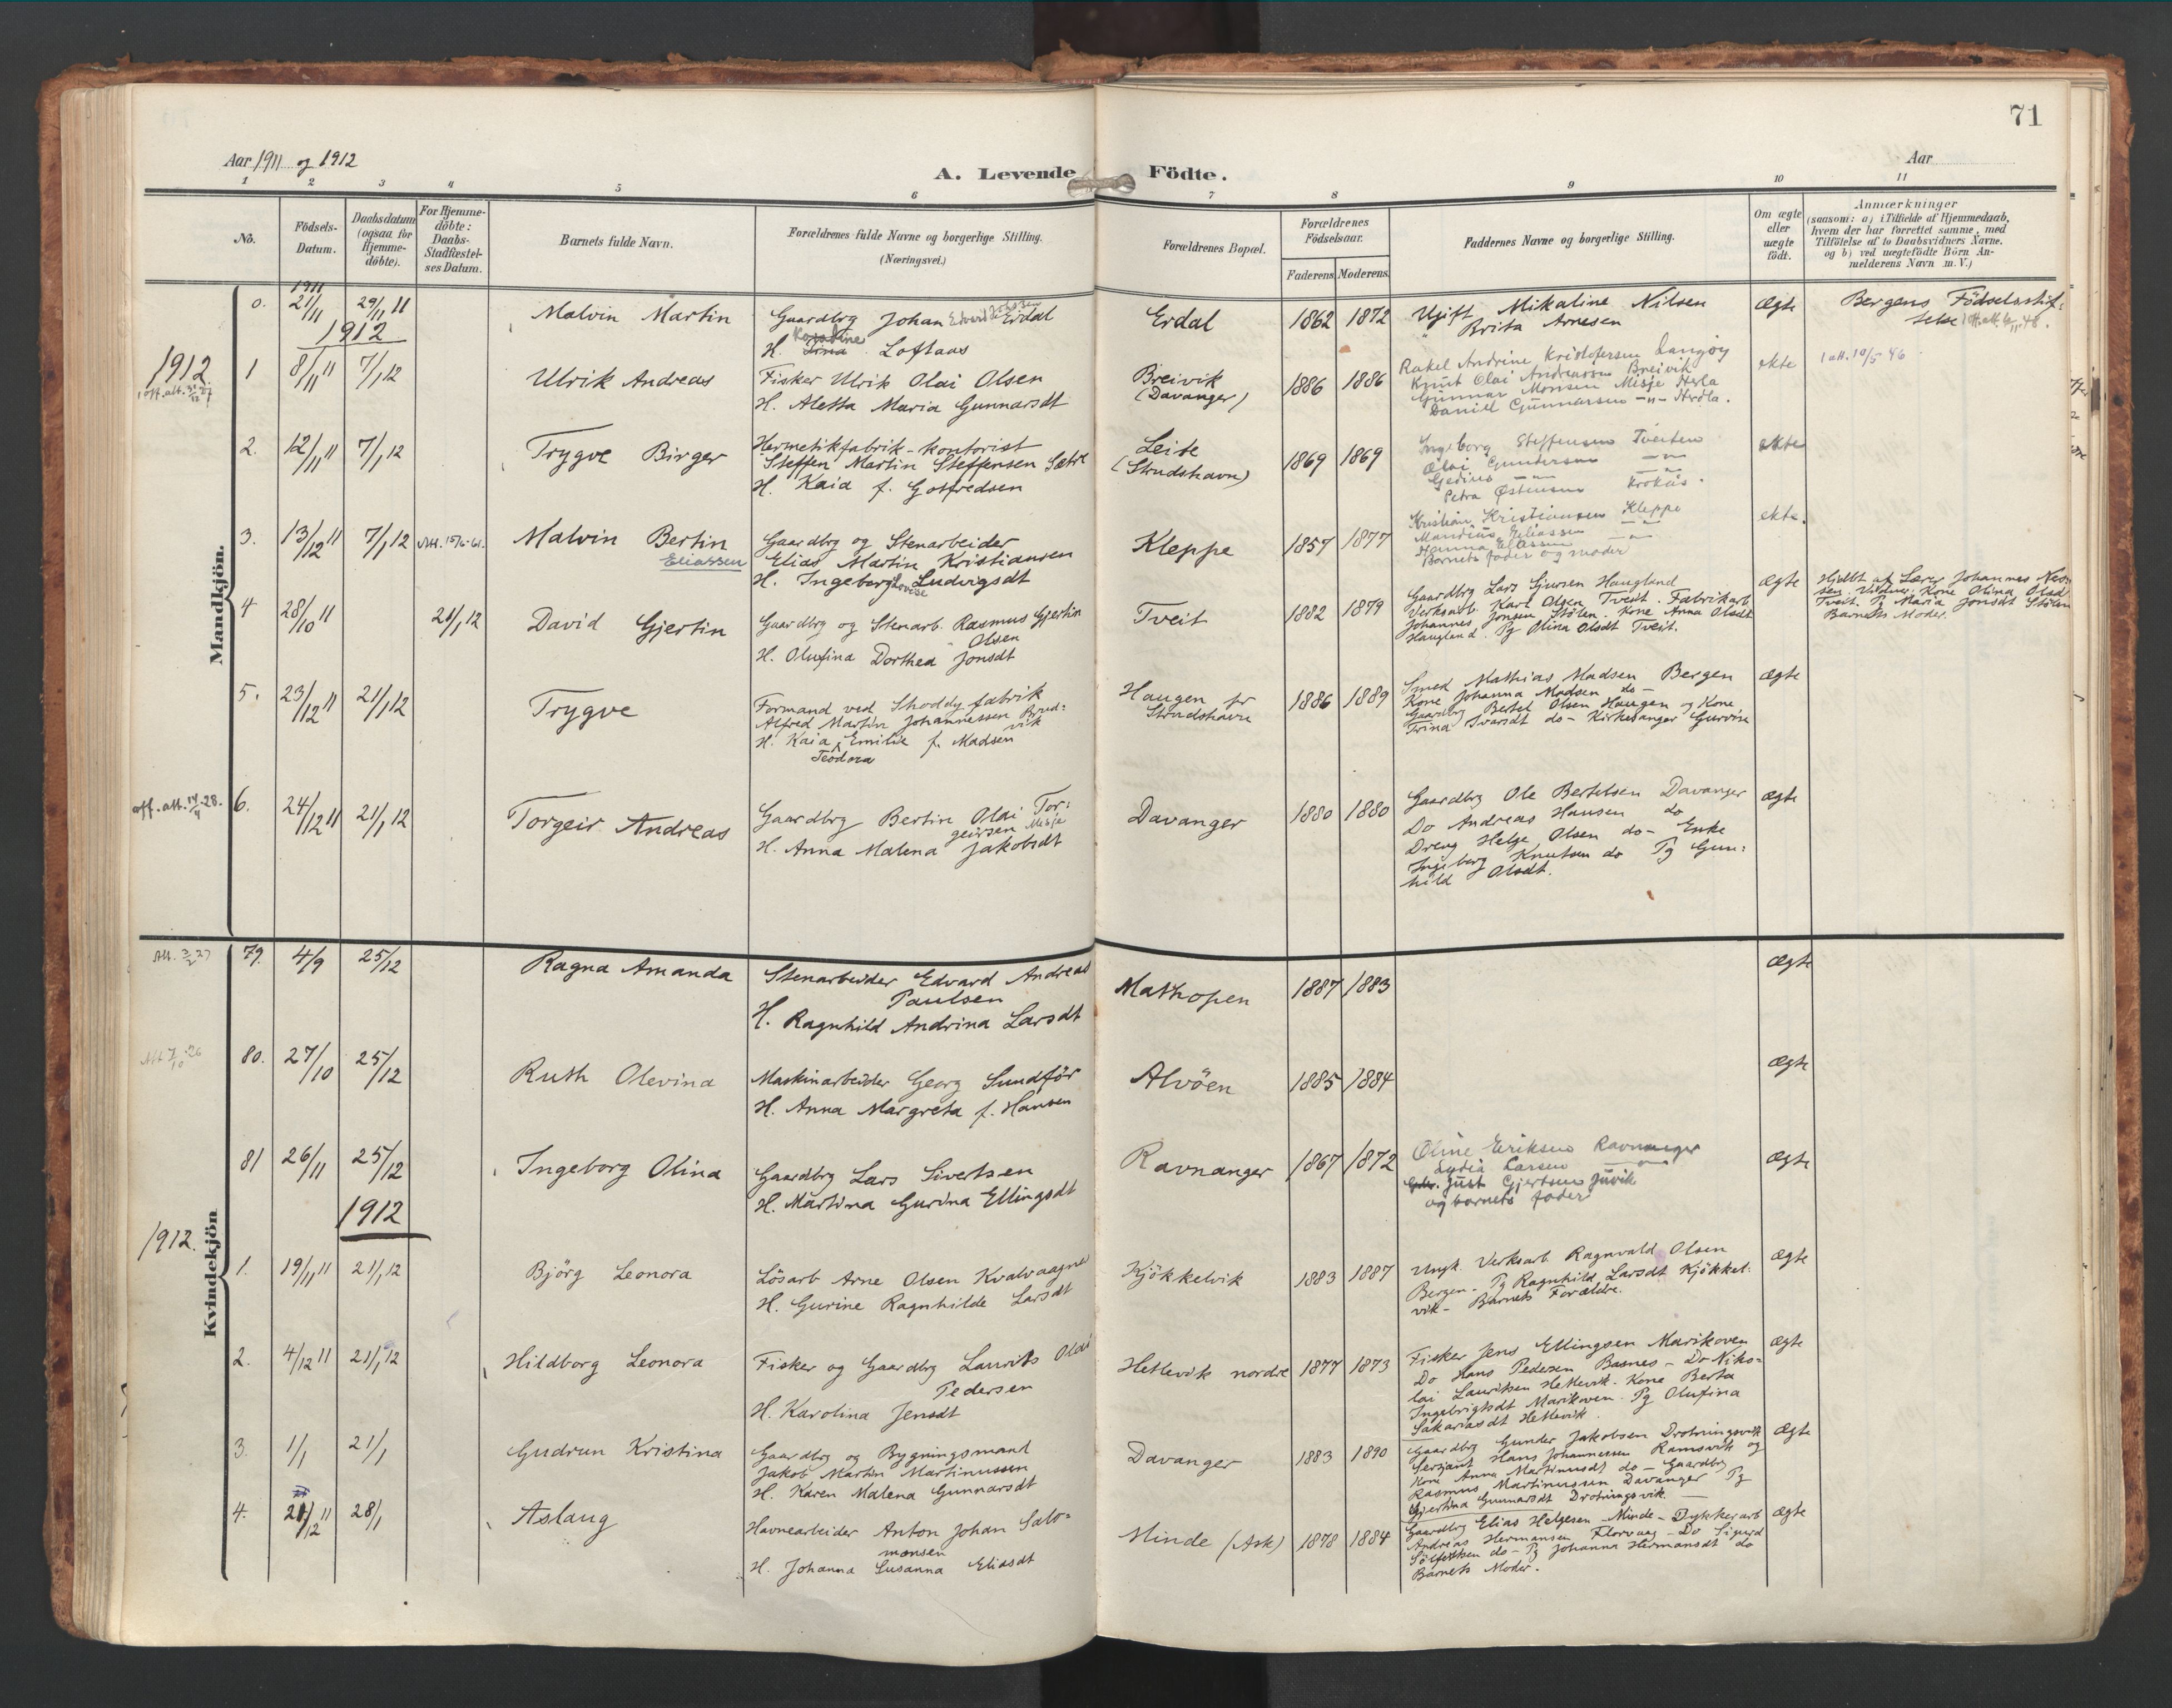 71
Aar 1911 og 1912
A. Levende Födte.
Aar
1 2 3 4 5 6 7 8 9 10 11
No.
Födsels-
Datum.
Daabsdatum
(ogsaa for
Hjemme-
döbte).
For Hjemme-
döbte:
Daabs-
Stadfæstel-
ses Datum.
Barnets fulde Navn.
Forældrenes fulde Navne og borgerlige Stilling.
(Næringsvei.)
Forældrenes Bopæl.
Forældrenes
Födselsaar.
Faderens. Moderens.
Faddernes Navne og borgerlige Stilling.
Om ægte
eller
uægte
födt.
Anmærkninger
(saasom: a) i Tilfælde af Hjemmedaab,
hvem der har forrettet samme, med
Tilföielse af to Daabsvidners Navne,
og b) ved uægtefödte Börn An-
melderens Navn m. V.)
Mandkjön.
1911
0. 21/11 29/11 11 Malvin Martin
Gaardbrg Johan Erdal
Konstine
H. Tina Loftaas
Erdal 1862 1872
Ugift Mikaline Nilsen
" Brita Arnesen
Ægte
Bergens Födselsstif-
telse
1912
1912
1 8/11 11 7/1 12 Ulrik Andreas
Fisker Ulrik Olai Olsen
H. Aletta Maria Gunnarsdt
Breivik
(Davanger)
1886 1886
Rakel Andrine Kristofersen Langöy
Knut Olai Andreassen Breivik
Gunnar Monsen Misje Herla
Daniel Gunnarsen -"- Herdla.
ekte
1 att. 10/5 46
2. 12/11 11 7/1 12 Trygve Birger
Hermetikfabrik-kontorist
Steffen Martin Steffensen Sætre
H. Kaia f. Gotfredsen
Leite
(Strudshavn)
1869 1869
Ingeborg Steffensen Tveiten
Olai Gundersen -"-
Petra Østensen Krokås.
ekte
3. 13/12 11 7/1 12 Malvin Bertin
Eliassen
Gaardbrg og Stenarbeider
Elias Martin Kristiansen
H. Ingeborg Lovise Ludvigsdt
Kleppe 1857 1877
Kristian Kristiansen Kleppe
Mandius Eliassen -"-
Hanna Eliassen -"-
Barnets fader og moder
ekte.
4 28/10 11 21/1 12 David Gjertin
Gaardbrg og Stenarb. Rasmus Gjertin
Olsen
H. Olufina Dorthea Jonsdt
Tveit 1882 1879
Gaardbrg Lars Gjersen Haugland
Verksarb. Karl Olsen Tveit. Fabrikarb.
Johannes Jonsen Stölen. Kone Anna Olsdt
Haugland. Pg Olina Olsdt Tveit.
Ægte
Hjdbt af Lærer Johannes Nes-
sen. Vidner: Kone Olina Olsd
Tveit. Pg Maria Jonsdt Stölen
Barnets Moder.
5. 23/12 11 21/1 12 Trygve
Formand ved Shoddyfabrik
Alfred Martin Johannessen Brud-
vik
H. Kaia Emilie f. Madsen
Teodora
Haugen pr
Strudshavn
1886 1889
Smed Mathias Madsen Bergen
Kone Johanna Madsen do-
Gaardbrg Bertel Olsen Haugen og Kone
Trina Ivarsdt do- Kirkesanger Gurvin
Ægte
off. att. 14/4 -28.
6. 24/12 11 21/1 12 Torgeir Andreas
Gaardbrg Bertin Olai Tor:
geirsen Misje
H. Anna Malena Jakobsdt
Davanger 1880 1880
Gaardbrg Ole Bertelsen Davanger
Do Andreas Hansen do
Dreng Helge Olsen do- Enke
Ingeborg Knutsen do Pg Gun:
hild Olsdt.
Ægte
Kvindekjön
Att. 3/2 27
79. 4/9 25/12 Ragna Amanda
Stenarbeider Edvard Andreas
Paulsen
H. Ragnhild Andrina Larsdt
Mathopen 1887 1883
Ægte
Att 7/10 -26
80. 27/10 25/12 Ruth Olevina
Maskinarbeider Georg Sundför
H. Anna Margreta f. Hansen
Alvöen 1885 1884
Ægte
81 26/11 25/12 Ingeborg Olina
Gaardbrg Lars Sivertsen
H. Martina Gurina Ellingsdt
Ravnanger 1867 1872
Oline Eriksen Ravnanger
Lydia Larsen -"-
Just Gjertsen Juvik
og barnets fader
Ægte
1912
1912.
1. 19/11 11 21/1 12 Björg Leonora
Lösarb Arne Olsen Kvalvaagne
H. Gurine Ragnhilde Larsdt
Kjökkelvik 1883 1887
Ungk. Verksarb Ragnvald Olsen
Bergen. Pg Ragnhild Larsdt Kjökkel-
vik- Barnets Forældre.
Ægte
2. 4/12 11 21/1 12 Hildborg Leonora
Fisker og Gaardbrg Laurits Olai
Pedersen
H. Karolina Jensdt
Hetlevik nordre 1877 1873
Fisker Jens Ellingsen Marikoven
Do Hans Pedersen Basnes - Do Niko-
lai Lauritsen Hetlevik. Kone Berta
Ingebrigtsdt Marikoven. Pg Olufina
Sakariasdt Hetlevik.
Ægte
3. 1/1 21/1 Gudrun Kristina
Gaardbrg og Bygningsmand
Jakob Martin Martinussen
H. Karen Malena Gunnarsdt
Davanger 1883 1890
Gaardbrg Gunder Jakobsen Drotningsvik
Sergiant Hans Johannessen Ramsvik og
Kone Anna Martinusdt do - Gaardbrg
Rasmus Martinussen Davanger Pg
Gjertina Gunnarsdt Drotningsvik.
Ægte
4. 21/12 11 28/1 Aslaug
Havnearbeider Anton Johan Salo-
monsen
H. Johanna Susanna Eliasdt
Minde (Ask) 1878 1884
Gaardbrg Elias Helgesen Minde - Dykkerarb
Andreas Hermansen Florvaag - Do Sigurd
Sölfestsen do - Pg Johanna Hermansdt do
Barnets Moder.
Ægte